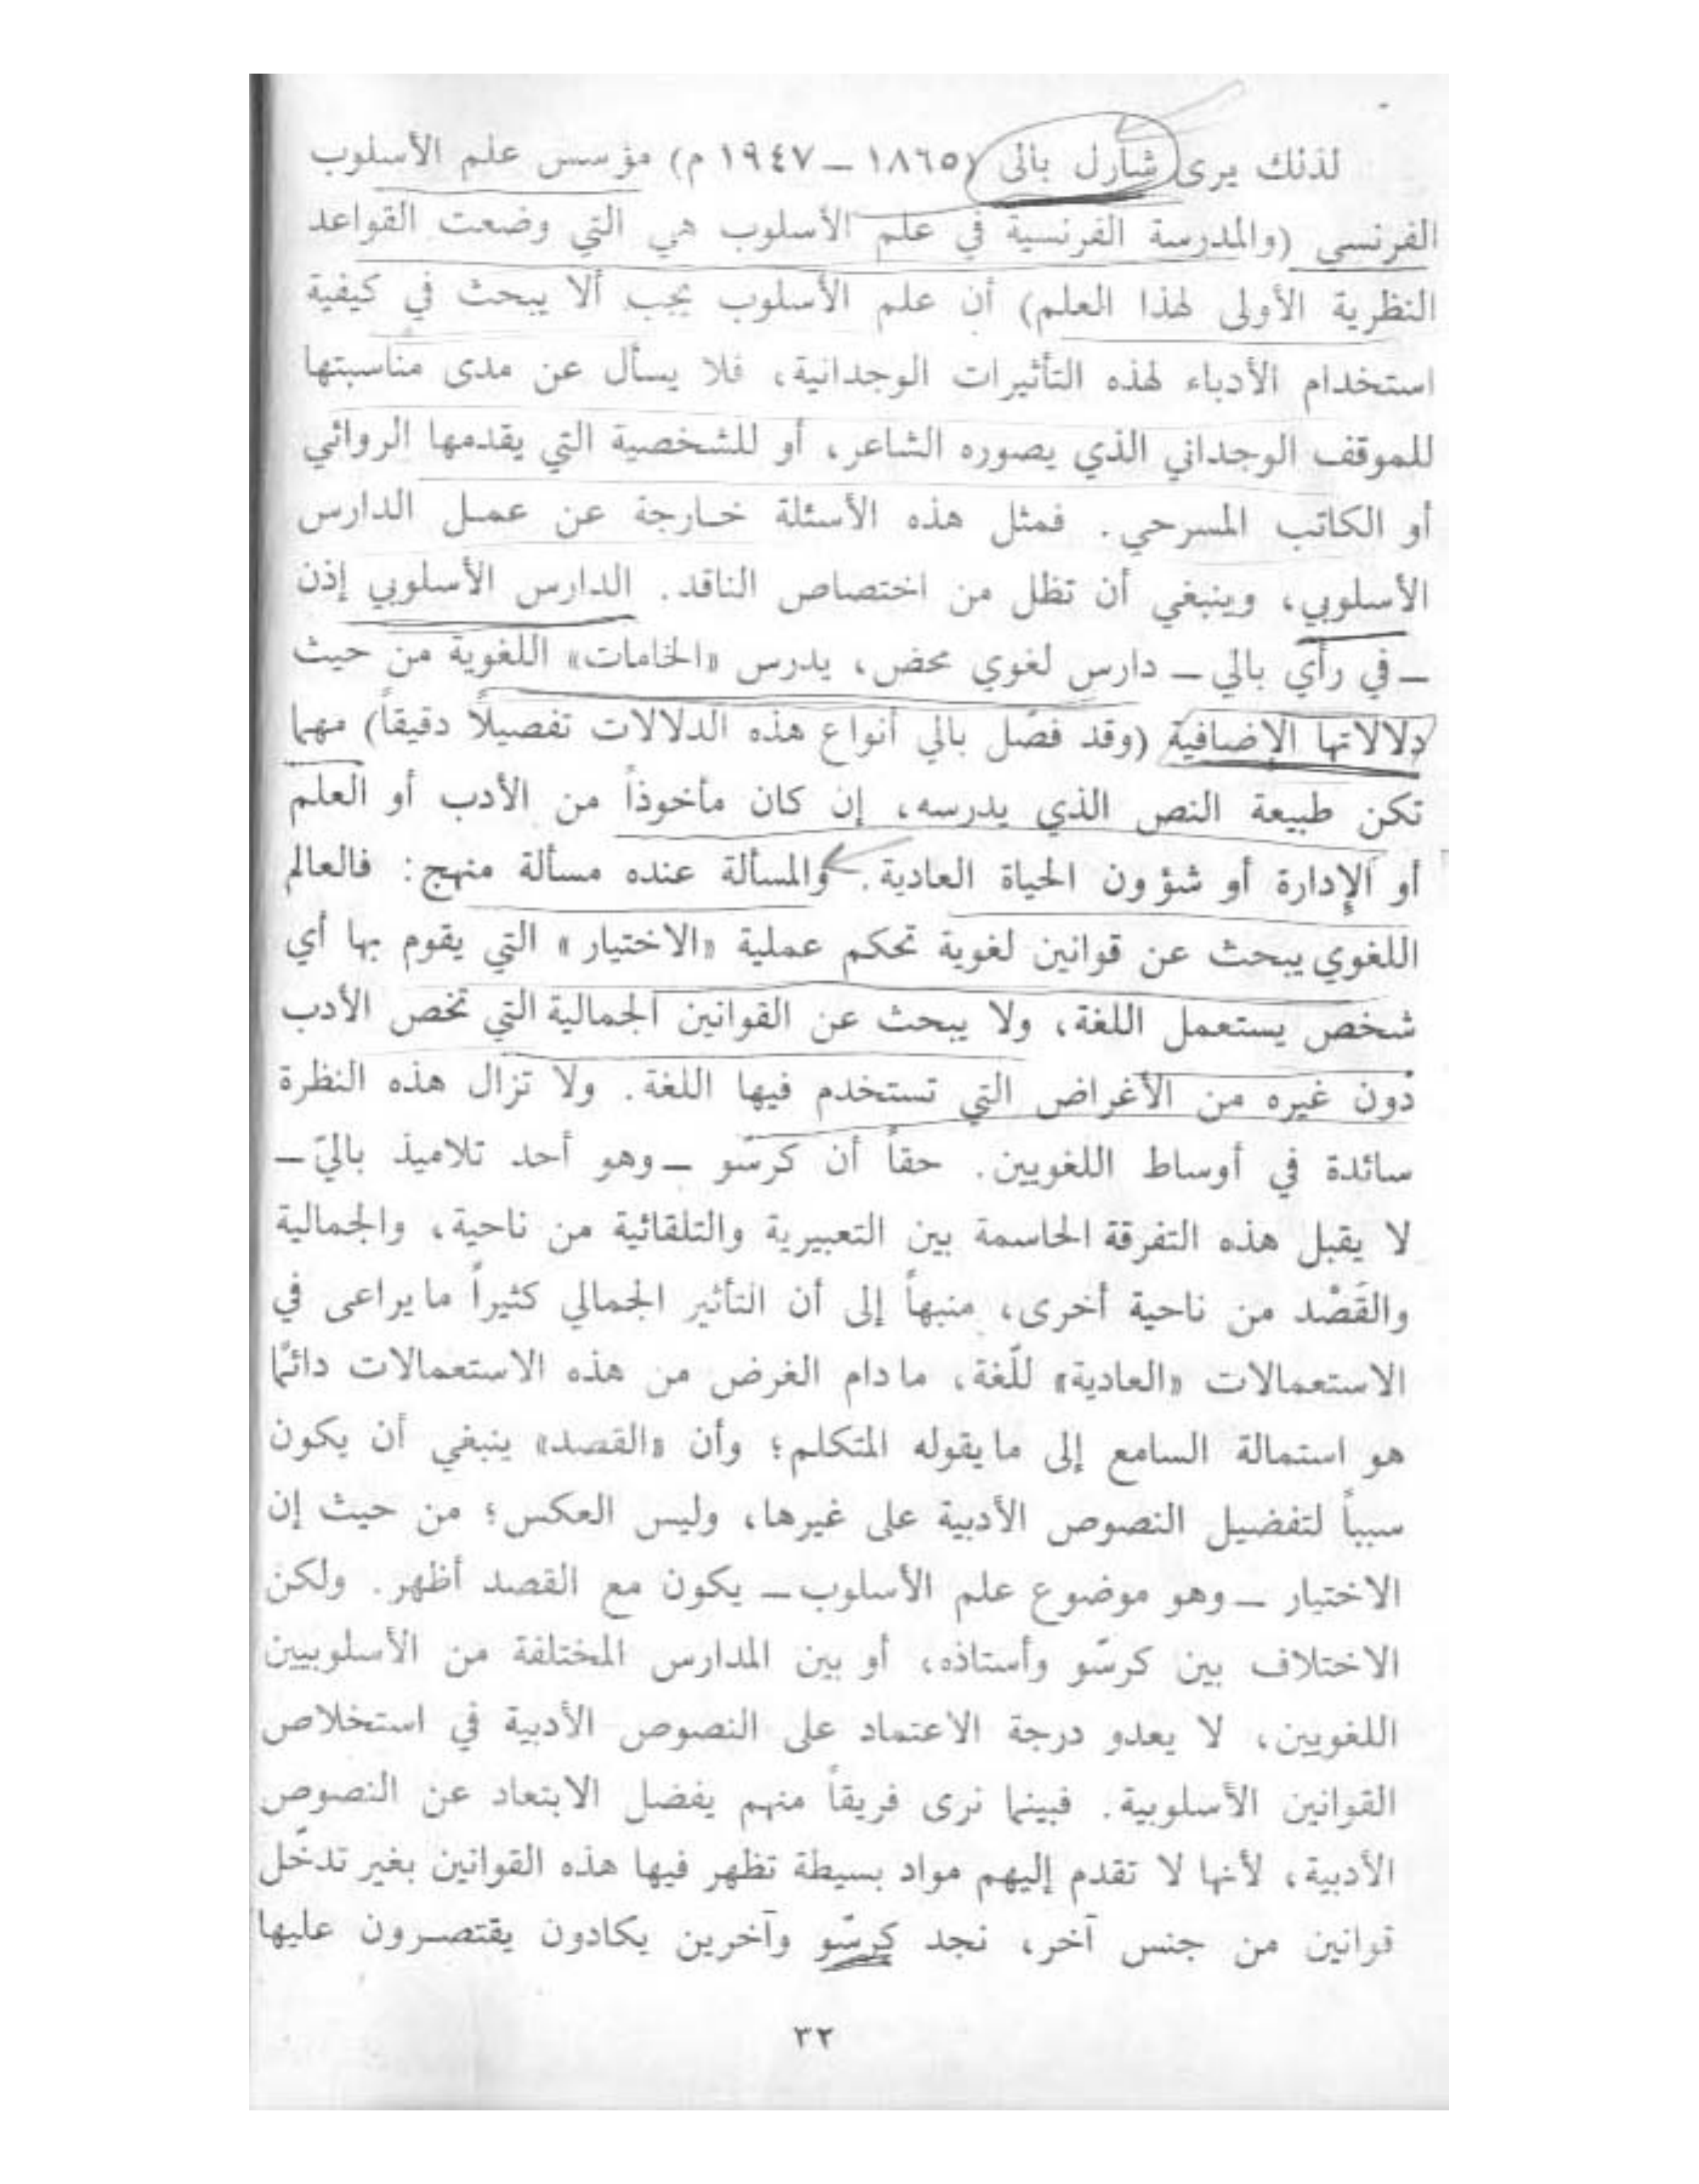 لذلك يرى شارل بالى (١٨٦٥ ــ ١٩٤٧ م) مؤسس علم الأسلوب
الفرنسي (والمدرسة الفرنسية في علم الأسلوب هي التي وضعت القواعد
النظرية الأولى لهذا العلم) أن علم الأسلوب يجب ألا يبحث في كيفية
استخدام الأدباء لهذه التأثيرات الوجدانية، فلا يسأل عن مدى مناسبتها
للموقف الوجداني الذي يصوره الشاعر، أو للشخصية التي يقدمها الروائي
أو الكاتب المسرحي. فمثل هذه الأسئلة خارجة عن عمل الدارس
الأسلوبي، وينبغي أن تظل من اختصاص الناقد. الدارس الأسلوبي إذن
ــ في رأي بالي ــ دارس لغوي محض، يدرس «الخامات» اللغوية من حيث
دلالاتها الإضافية (وقد فصّل بالي أنواع هذه الدلالات تفصيلاً دقيقاً) مهما
تكن طبيعة النص الذي يدرسه، إن كان مأخوذاً من الأدب أو العلم
أو الإدارة أو شؤون الحياة العادية. والمسألة عنده مسألة منهج: فالعالم
اللغوي يبحث عن قوانين لغوية تحكم عملية «الاختيار» التي يقوم بها أي
شخص يستعمل اللغة، ولا يبحث عن القوانين الجمالية التي تخص الأدب
دون غيره من الأغراض التي تستخدم فيها اللغة. ولا تزال هذه النظرة
سائدة في أوساط اللغويين. حقاً أن كرسّو ــ وهو أحد تلاميذ باليّ ــ
لا يقبل هذه التفرقة الحاسمة بين التعبيرية والتلقائية من ناحية، والجمالية
والقَصْد من ناحية أخرى، منبهاً إلى أن التأثير الجمالي كثيراً ما يراعى في
الاستعمالات «العادية» للّغة، ما دام الغرض من هذه الاستعمالات دائمًا
هو استمالة السامع إلى ما يقوله المتكلم؛ وأن «القصد» ينبغي أن يكون
سبباً لتفضيل النصوص الأدبية على غيرها، وليس العكس؛ من حيث إن
الاختيار ــ وهو موضوع علم الأسلوب ــ يكون مع القصد أظهر. ولكن
الاختلاف بين كرسّو وأستاذه، أو بين المدارس المختلفة من الأسلوبيين
اللغويين، لا يعدو درجة الاعتماد على النصوص الأدبية في استخلاص
القوانين الأسلوبية. فبينما نرى فريقاً منهم يفضل الابتعاد عن النصوص
الأدبية، لأنها لا تقدم إليهم مواد بسيطة تظهر فيها هذه القوانين بغير تدخّل
قوانين من جنس آخر، نجد كرسّو وآخرين يكادون يقتصرون عليها
٣٢